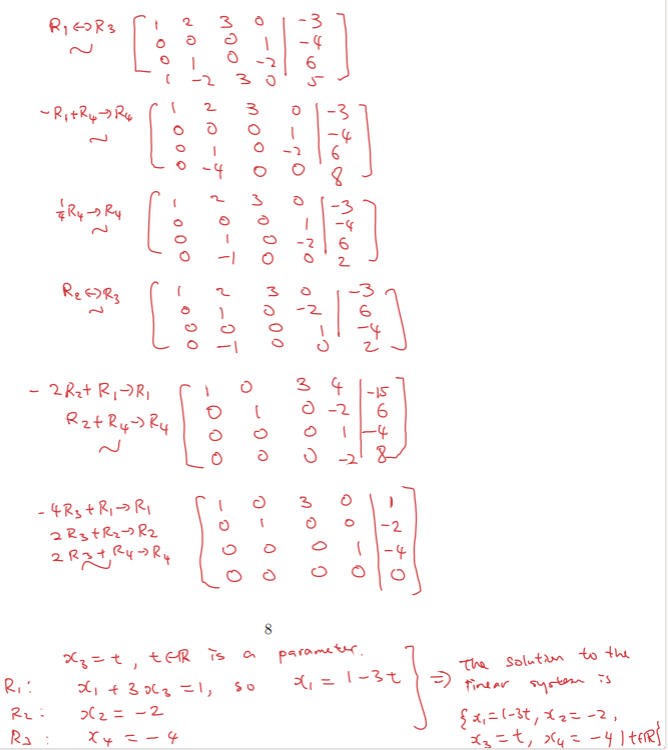 R₁↔R₃ [ 1 2 3 0 | -3 ]
0 0 0 1 | -4
0 1 0 -2 | 6
1 -2 3 0 5
~
-R₁+R₄→R₄ [ 1 2 3 0 | -3 ]
0 0 0 1 | -4
0 1 0 -2 | 6
0 -4 0 0 8
~
¼R₄→R₄ [ 1 2 3 0 | -3 ]
0 0 0 1 | -4
0 1 0 -2 | 6
0 -1 0 0 2
~
R₂↔R₃ [ 1 2 3 0 | -3 ]
0 1 0 -2 | 6
0 0 0 1 | -4
0 -1 0 0 2
~
- 2R₂+R₁→R₁ [ 1 0 3 4 | -15 ]
R₂+R₄→R₄ 0 1 0 -2 | 6
0 0 0 1 | -4
0 0 0 -2 | 8
~
-4R₃+R₁→R₁ [ 1 0 3 0 | 1 ]
2R₃+R₂→R₂ 0 1 0 0 | -2
2R₃+R₄→R₄ 0 0 0 1 | -4
0 0 0 0 | 0
~
8
x₃=t, t∈ℝ is a parameter.
R₁: x₁+3x₃=1, so x₁=1-3t
R₂: x₂=-2
R₃: x₄=-4
⇒ The solution to the
linear system is
{x₁=1-3t, x₂=-2,
x₃=t, x₄=-4 | t∈ℝ}